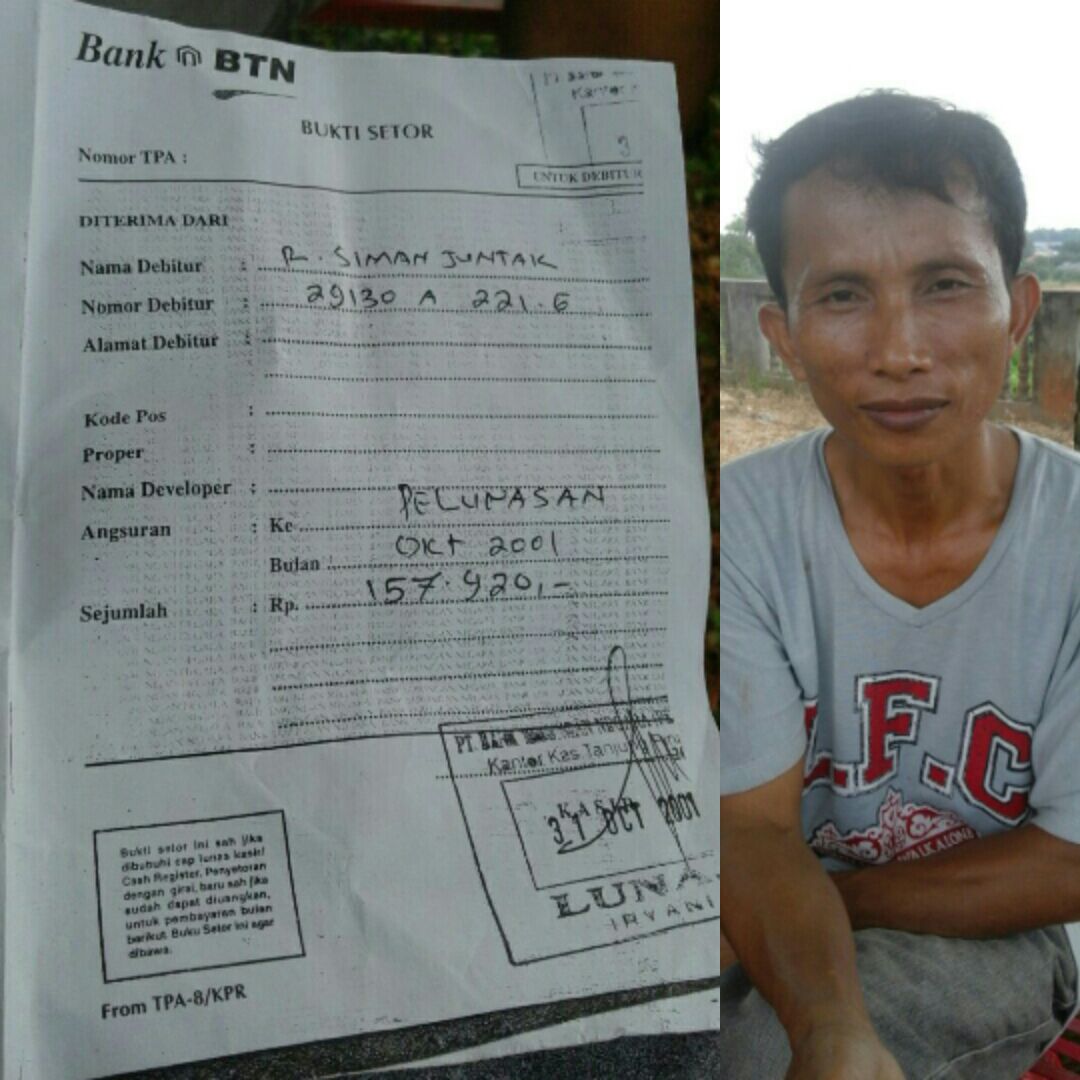 Bank BTN
BUKTI SETOR
Nomor TPA :
3
UNTUK DEBITUR
DITERIMA DARI
Nama Debitur : R. SIMANJUNTAK
Nomor Debitur : 29130 A 221.6
Alamat Debitur :
Kode Pos :
Proper :
Nama Developer :
Angsuran : Ke PELUNASAN
Bulan : OKT 2001
Sejumlah : Rp. 157.920,-
PT. BANK
Kantor Kas
KASIR
31 OCT 2001
LUNA
IRYANI
Bukti setor ini sah jika
dibubuhi cap lunas kasir/
Cash Register. Penyetoran
dengan giral, baru sah jika
sudah dapat diuangkan,
untuk pembayaran bulan
berikut Buku Setor ini agar
dibawa.
From TPA-8/KPR
L.F.C
WALK ALONE